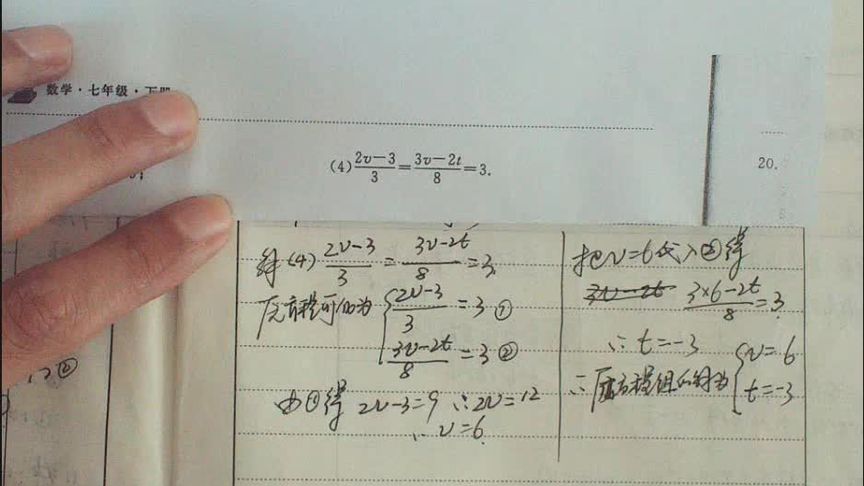 数学·七年级·下册
(4) \frac{2v-3}{3}=\frac{3v-2t}{8}=3.
20.
解(4) \frac{2v-3}{3}=\frac{3v-2t}{8}=3.
原方程可化为 \begin{cases}\frac{2v-3}{3}=3 ① \\ \frac{3v-2t}{8}=3 ②\end{cases}
由①得 2v-3=9 ∴2v=12
∴v=6.
把v=6代入②得
\frac{3×6-2t}{8}=3.
∴t=-3
∴原方程组的解为 \begin{cases}v=6 \\ t=-3\end{cases}